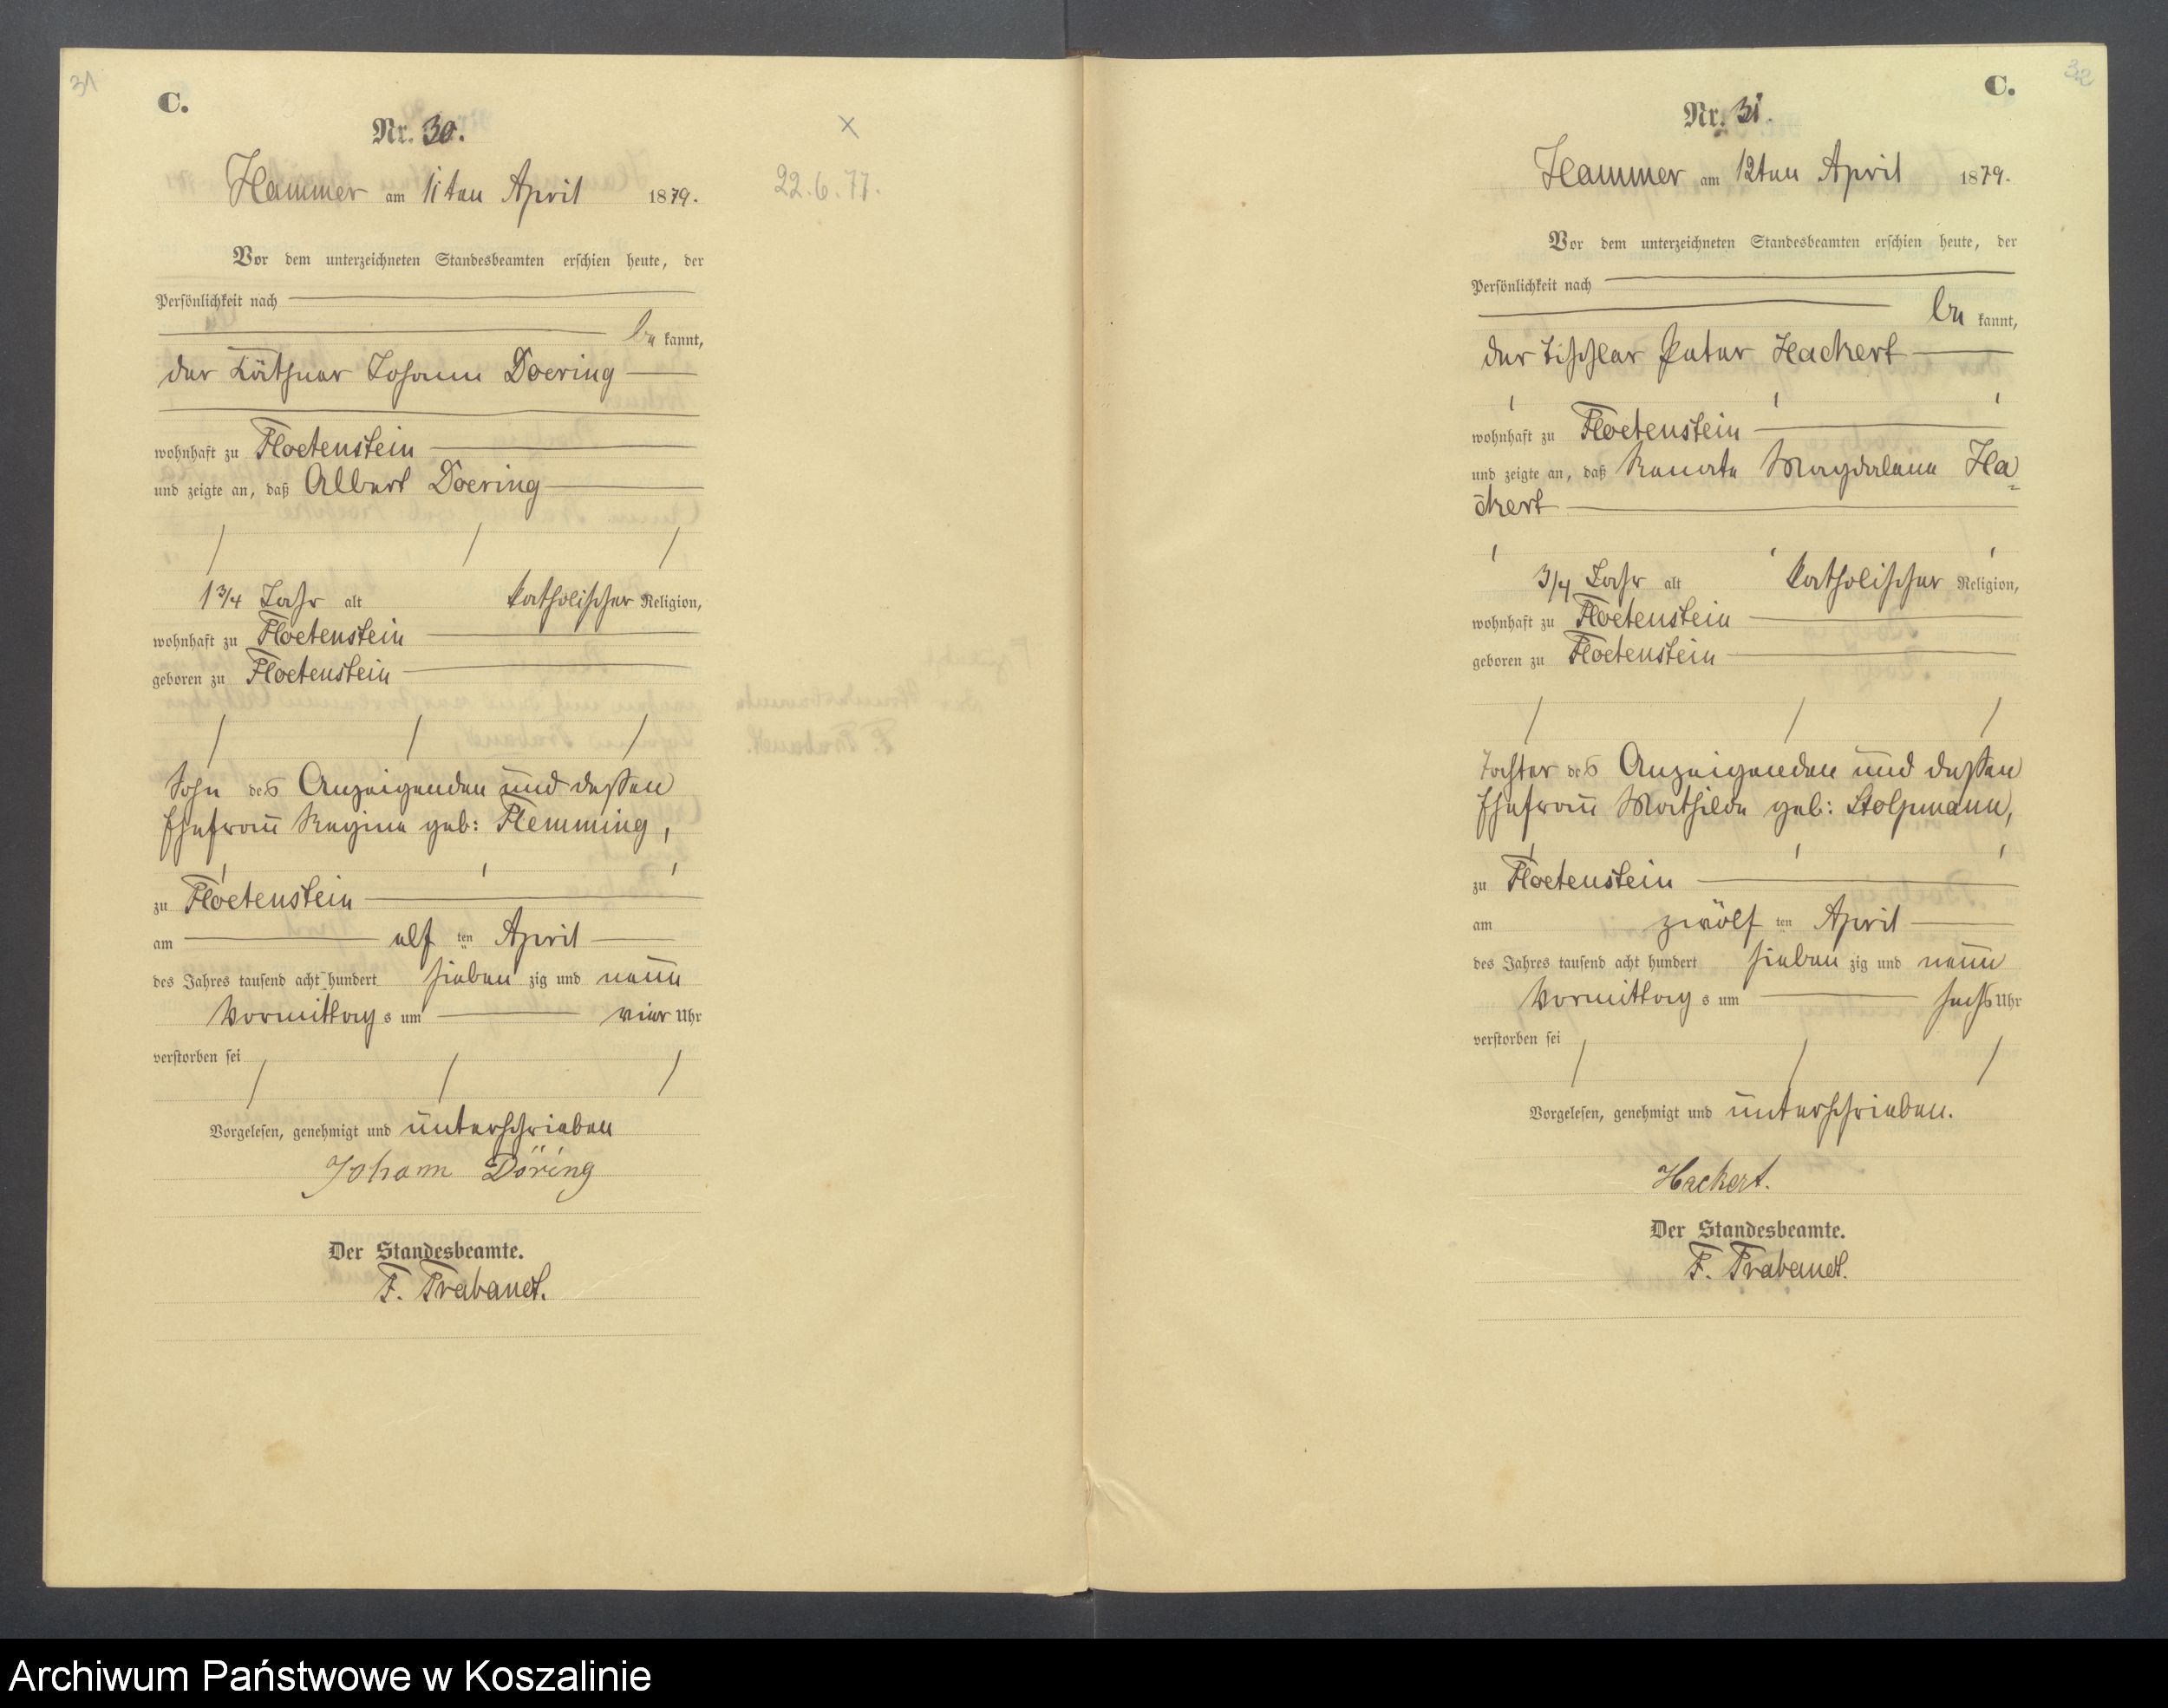 31
C.
Nr. 30.
Hammer am 11ten April 1879.
Vor dem unterzeichneten Standesbeamten erschien heute, der
Persönlichkeit nach
be kannt,
der Käthner Johann Doering
wohnhaft zu Floetenstein
und zeigte an, daß Albert Doering
1 3/4 Jahr alt katholischer Religion,
wohnhaft zu Floetenstein
geboren zu Floetenstein
Sohn des Anzeigenden und dessen
Ehefrau Regine geb: Flemming,
zu Floetenstein
am elf ten April
des Jahres tausend acht hundert sieben zig und neun
Vormittag s um vier Uhr
verstorben sei
Vorgelesen, genehmigt und unterschrieben
Johann Döring
Der Standesbeamte.
F. Trabandt.
x
22.6.77.
32
C.
Nr. 31.
Hammer am 12ten April 1879.
Vor dem unterzeichneten Standesbeamten erschien heute, der
Persönlichkeit nach
be kannt,
der Tischler Peter Hackert
wohnhaft zu Floetenstein
und zeigte an, daß Renate Magdalena Ha=
ckert
3/4 Jahr alt katholischer Religion,
wohnhaft zu Floetenstein
geboren zu Floetenstein
Tochter des Anzeigenden und dessen
Ehefrau Mathilde geb: Stolpmann,
zu Floetenstein
am zwölf ten April
des Jahres tausend acht hundert sieben zig und neun
Vormittag s um sechs Uhr
verstorben sei
Vorgelesen, genehmigt und unterschrieben.
Hackert.
Der Standesbeamte.
F. Trabandt.
Archiwum Państwowe w Koszalinie